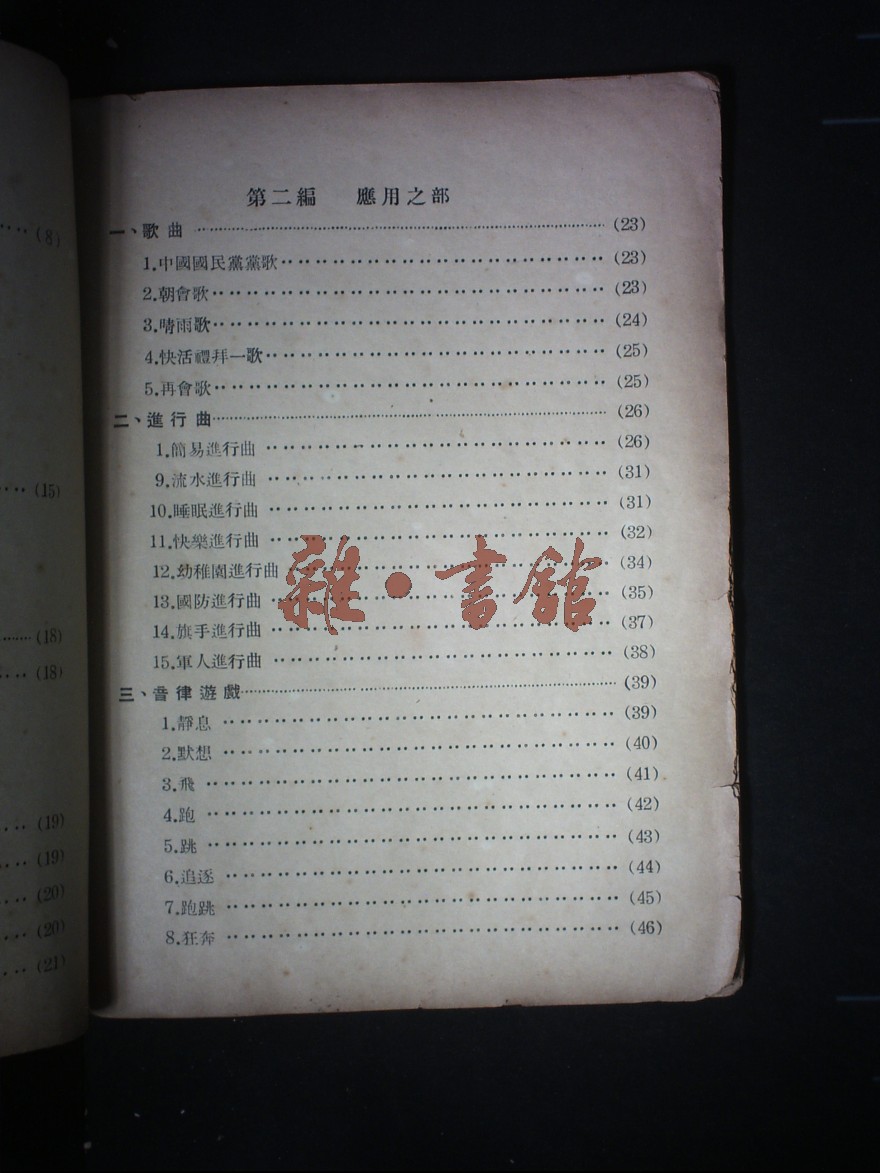 (8)
(15)
(18)
(18)
(19)
(19)
(20)
(20)
(21)
第二編 應用之部
一、歌曲 (23)
1.中國國民黨黨歌 (23)
2.朝會歌 (23)
3.晴雨歌 (24)
4.快活禮拜一歌 (25)
5.再會歌 (25)
二、進行曲 (26)
1.簡易進行曲 (26)
9.流水進行曲 (31)
10.睡眠進行曲 (31)
11.快樂進行曲 (32)
12.幼稚園進行曲 (34)
13.國防進行曲 (35)
14.旗手進行曲 (37)
15.軍人進行曲 (38)
三、音律遊戲 (39)
1.靜息 (39)
2.默想 (40)
3.飛 (41)
4.跑 (42)
5.跳 (43)
6.追逐 (44)
7.跑跳 (45)
8.狂奔 (46)
雜·書館